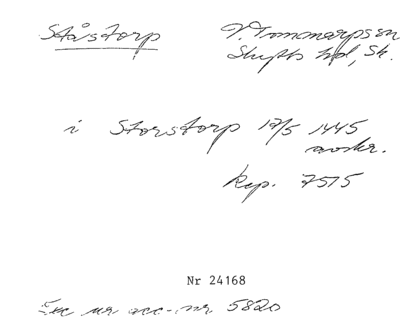 Ståstorp V. Tommarps sn
Skytts hd, Sk.
i Storstorp 17/5 1445
avskr.
Rep. 7575
Nr 24168
acc-nr 5820